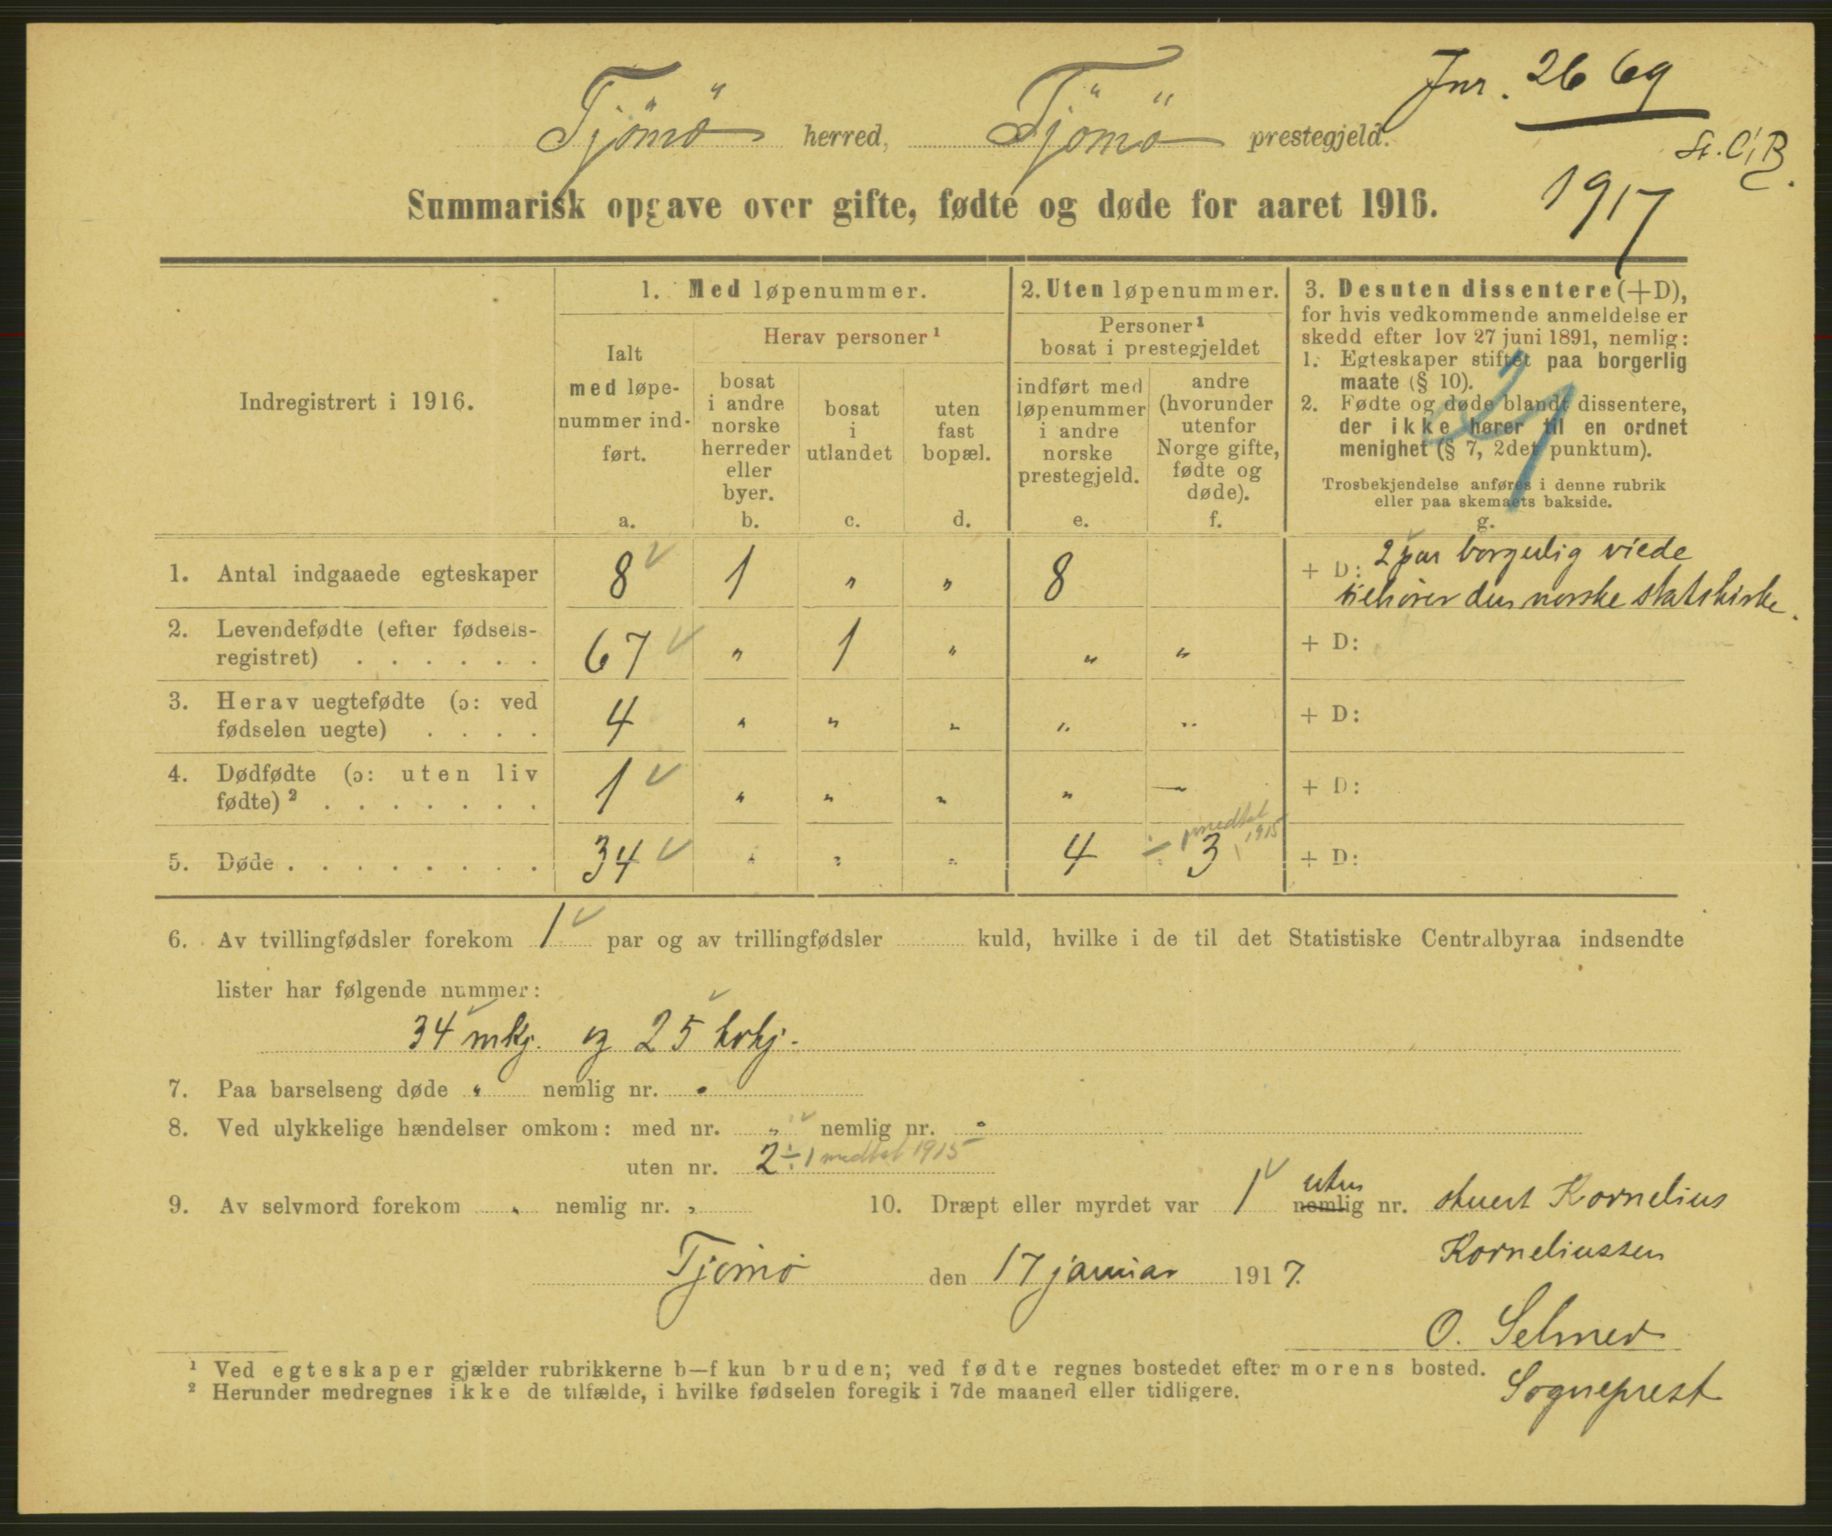 Jnr. 2669
St. C. B.
1917
Tjömö herred, Tjömö prestegjeld.
Summarisk opgave over gifte, fødte og døde for aaret 1916.
Indregistrert i 1916.
1. Med løpenummer.
Ialt
med løpe-
nummer ind-
ført.
a.
Herav personer ¹
bosat
i andre
norske
herreder
eller
byer.
b.
bosat
i
utlandet
c.
uten
fast
bopæl.
d.
2. Uten løpenummer.
Personer ¹
bosat i prestegjeldet
indført med
løpenummer
i andre
norske
prestegjeld.
e.
andre
(hvorunder
utenfor
Norge gifte,
fødte og
døde).
f.
3. Desuten dissentere (+D),
for hvis vedkommende anmeldelse er
skedd efter lov 27 juni 1891, nemlig:
1. Egteskaper stiftet paa borgerlig
maate (§ 10).
2. Fødte og døde blandt dissentere,
der ikke hører til en ordnet
menighet (§ 7, 2det punktum).
Trosbekjendelse anføres i denne rubrik
eller paa skemaets bakside.
g.
1. Antal indgaaede egteskaper 8 1 " " 8 + D: 2 par borgerlig viede
tilhører den norske statskirke.
2. Levendefødte (efter fødsels-
registret) . . . . . . 67 " 1 " " " + D:
3. Herav uegtefødte (ɔ: ved
fødselen uegte) . . . . 4 " " " " " + D:
4. Dødfødte (ɔ: uten liv
fødte) ² . . . . . . . 1 " " " " — + D:
5. Døde . . . . . . . . 34 " " " 4 3 ÷ 1 medtat 1915 + D:
6. Av tvillingfødsler forekom 1 par og av trillingfødsler kuld, hvilke i de til det Statistiske Centralbyraa indsendte
lister har følgende nummer:
34 mkj. og 25 kvkj.
7. Paa barselseng døde " nemlig nr. "
8. Ved ulykkelige hændelser omkom: med nr. " nemlig nr. "
uten nr. 2 ÷ 1 medtat 1915
9. Av selvmord forekom " nemlig nr. " 10. Dræpt eller myrdet var 1 uten nemlig nr. stuert Kornelius
Korneliussen
Tjømø den 17 januar 1917.
O. Selmer
Sogneprest
¹ Ved egteskaper gjælder rubrikkerne b—f kun bruden; ved fødte regnes bostedet efter morens bosted.
² Herunder medregnes ikke de tilfælde, i hvilke fødselen foregik i 7de maaned eller tidligere.